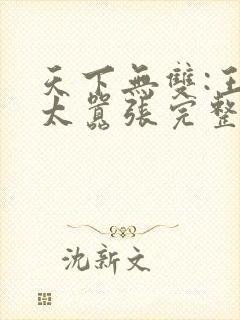 天下無雙:王
太囂張完整
沈新文